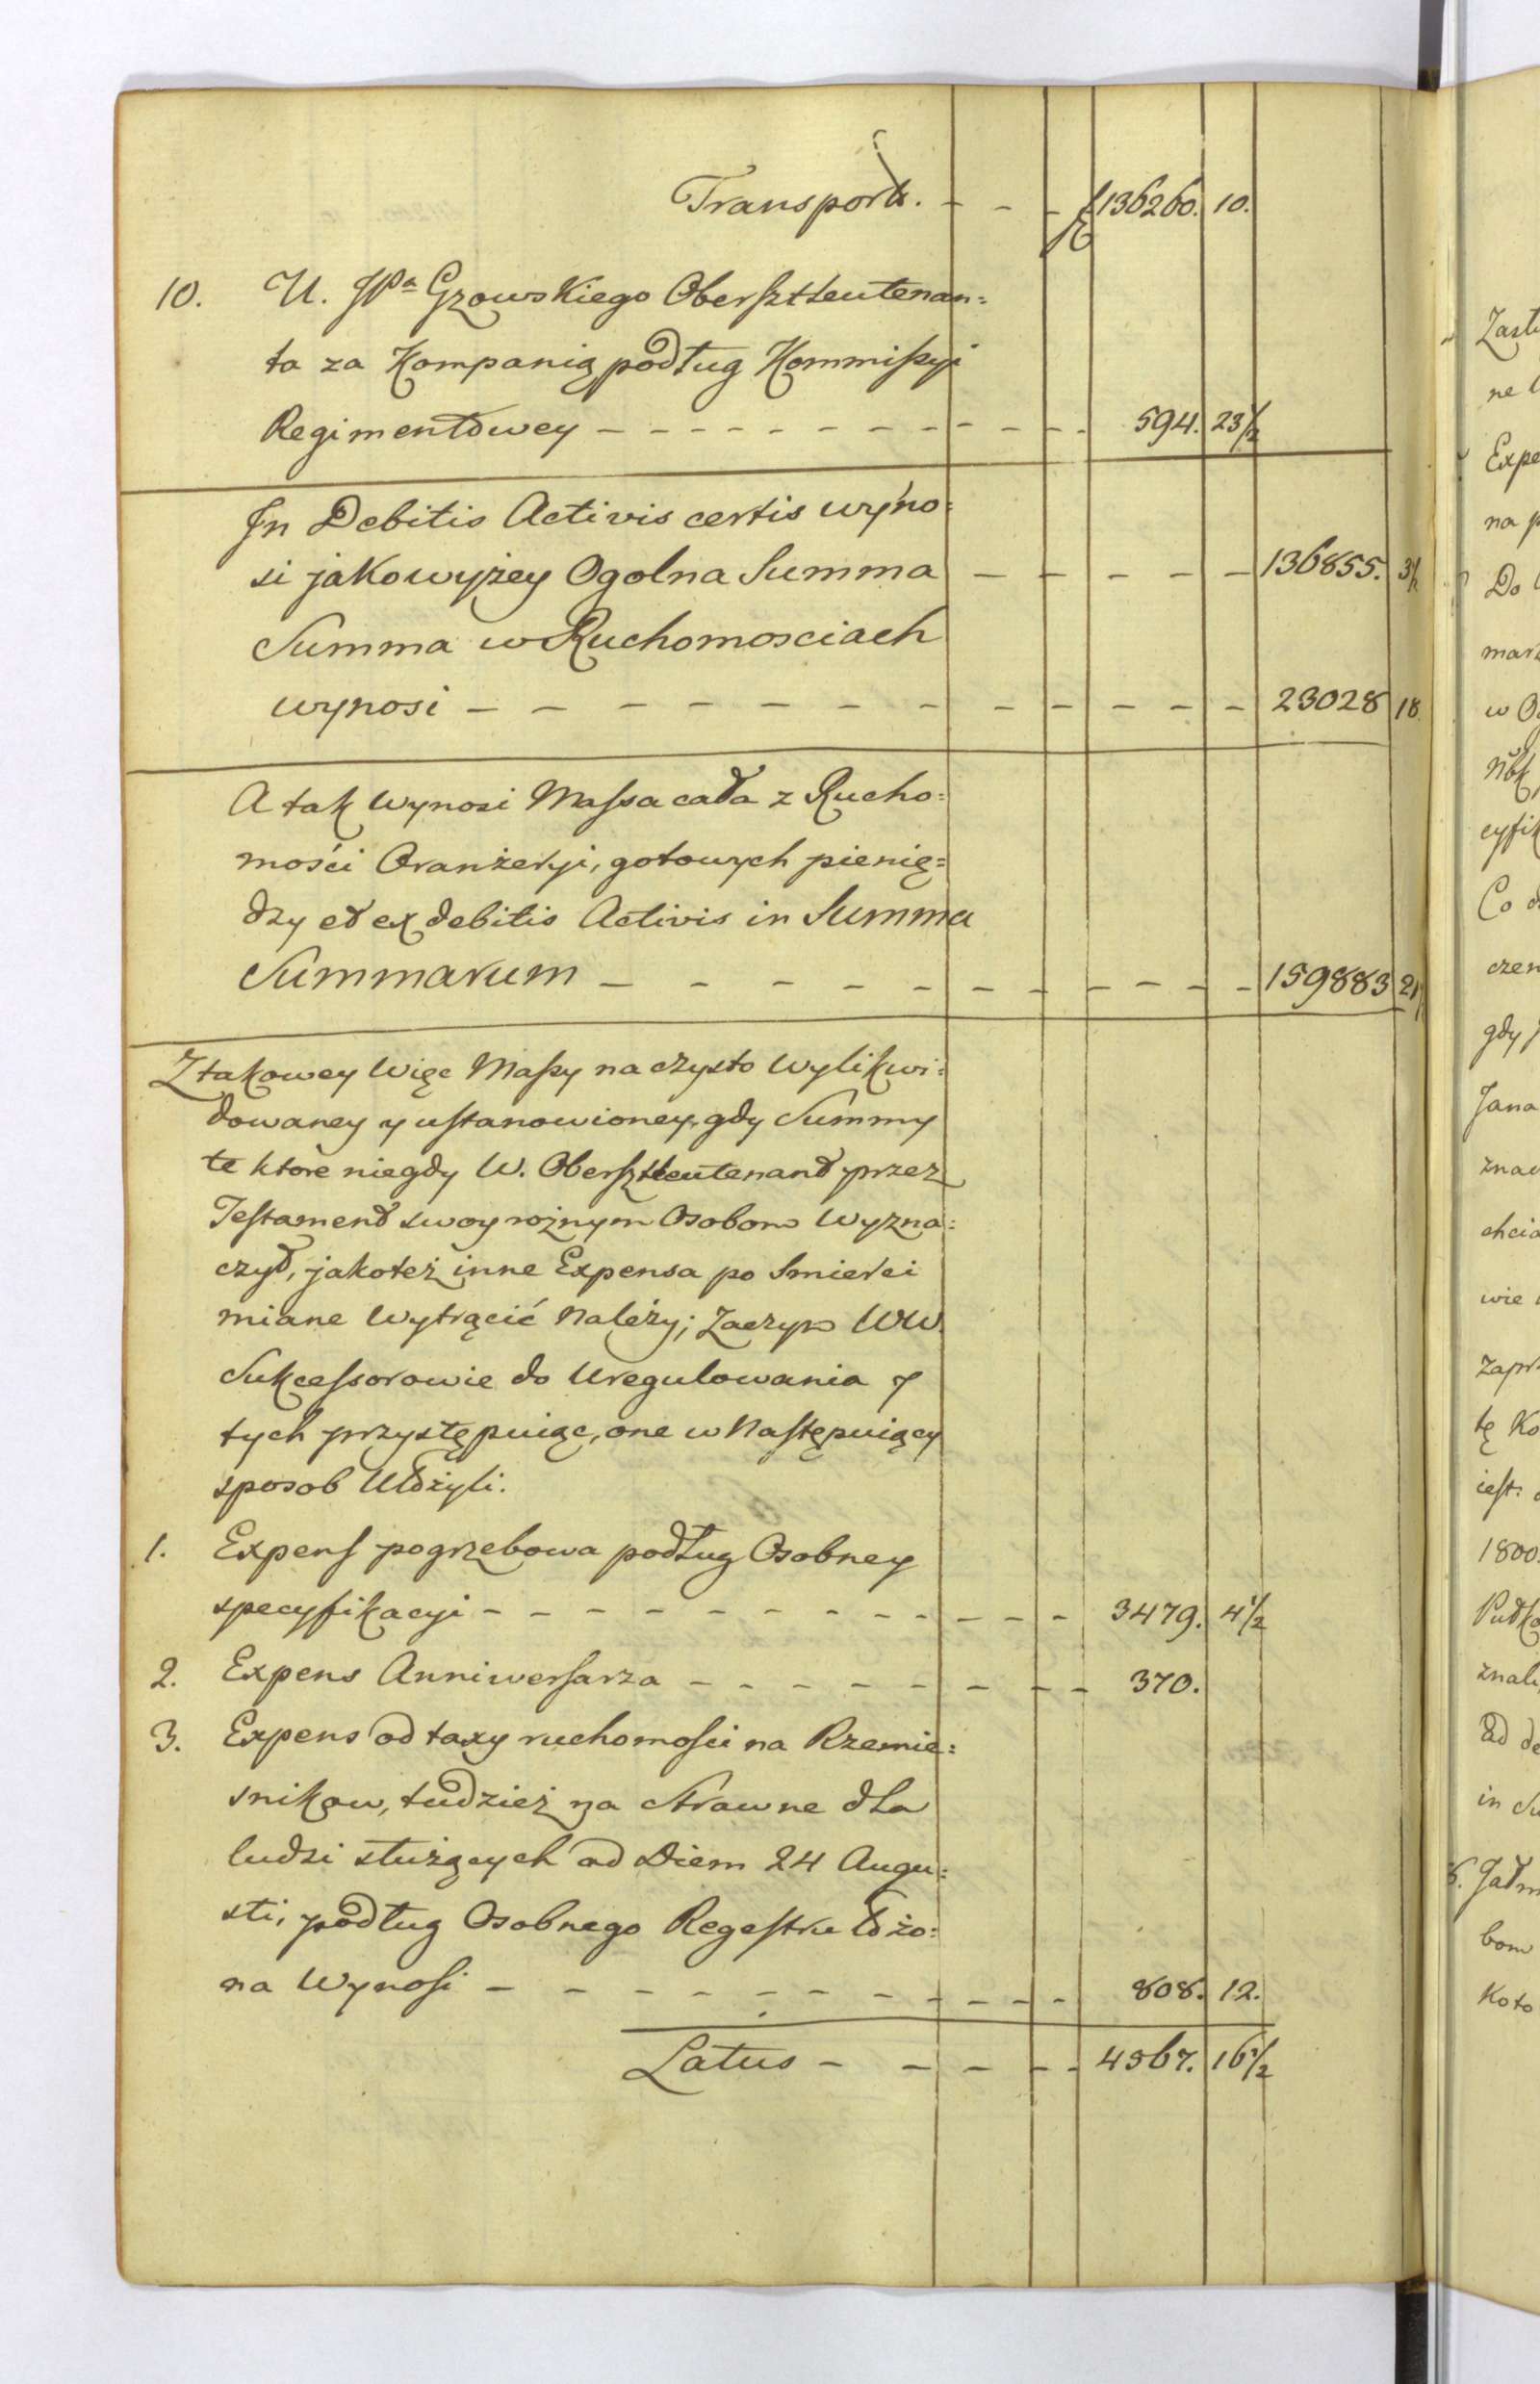 Transport. - - - f 136260. 10.
10. U. JPa Gzowskiego Obersztleutenan=
ta za Kompanią podług Kommissyi
Regimentowey - - - - - - - - - - 594. 23 1/2
In Debitis Activis certis wyno=
si jako wyżey Ogolna Summa - - - - - 136855. 3 1/2
Summa w Ruchomosciach
wynosi - - - - - - - - - - - - - 23028 18
A tak wynosi Massa cała z Rucho=
mości Oranżeryi, gotowych pienię=
dzy et ex debitis Activis in Summa
Summarum - - - - - - - - - - - 159883 21
Z takowey więc Massy na czysto wylikwi=
dowaney y ustanowioney, gdy Summy
te które niegdy W. Obersztleutenant przez
Testament swoy rożnym Osobom wyzna=
czył, jakoteż inne Expensa po Smierci
miane wytrącić należy; Zaczym WW.
Sukcessorowie do uregulowania y
tych przystępuiąc, one w następuiący
sposob ułożyli.
1. Expens pogrzebowa podług Osobney
specyfikacyi - - - - - - - - - - 3479. 4 1/2
2. Expens Anniwersarza - - - - - - - 370.
3. Expens od taxy ruchomosci na Rzemie=
snikow, tudzież na strawne dla
ludzi służących ad Diem 24 Augu=
sti, podług Osobnego Regestru łożo=
na wynosi - - - - - - - - - - 808. 12.
Latus - - - - - 4567. 16 1/2
Zastu
ne
Expe
na p
Do
marz
w O
cyfik
Co
czen
gdy
Jana
znac
chcia
wie
zapr
tę Ko
iest:
1800.
Pułko
znale
Ad de
in Su
bom
Koto